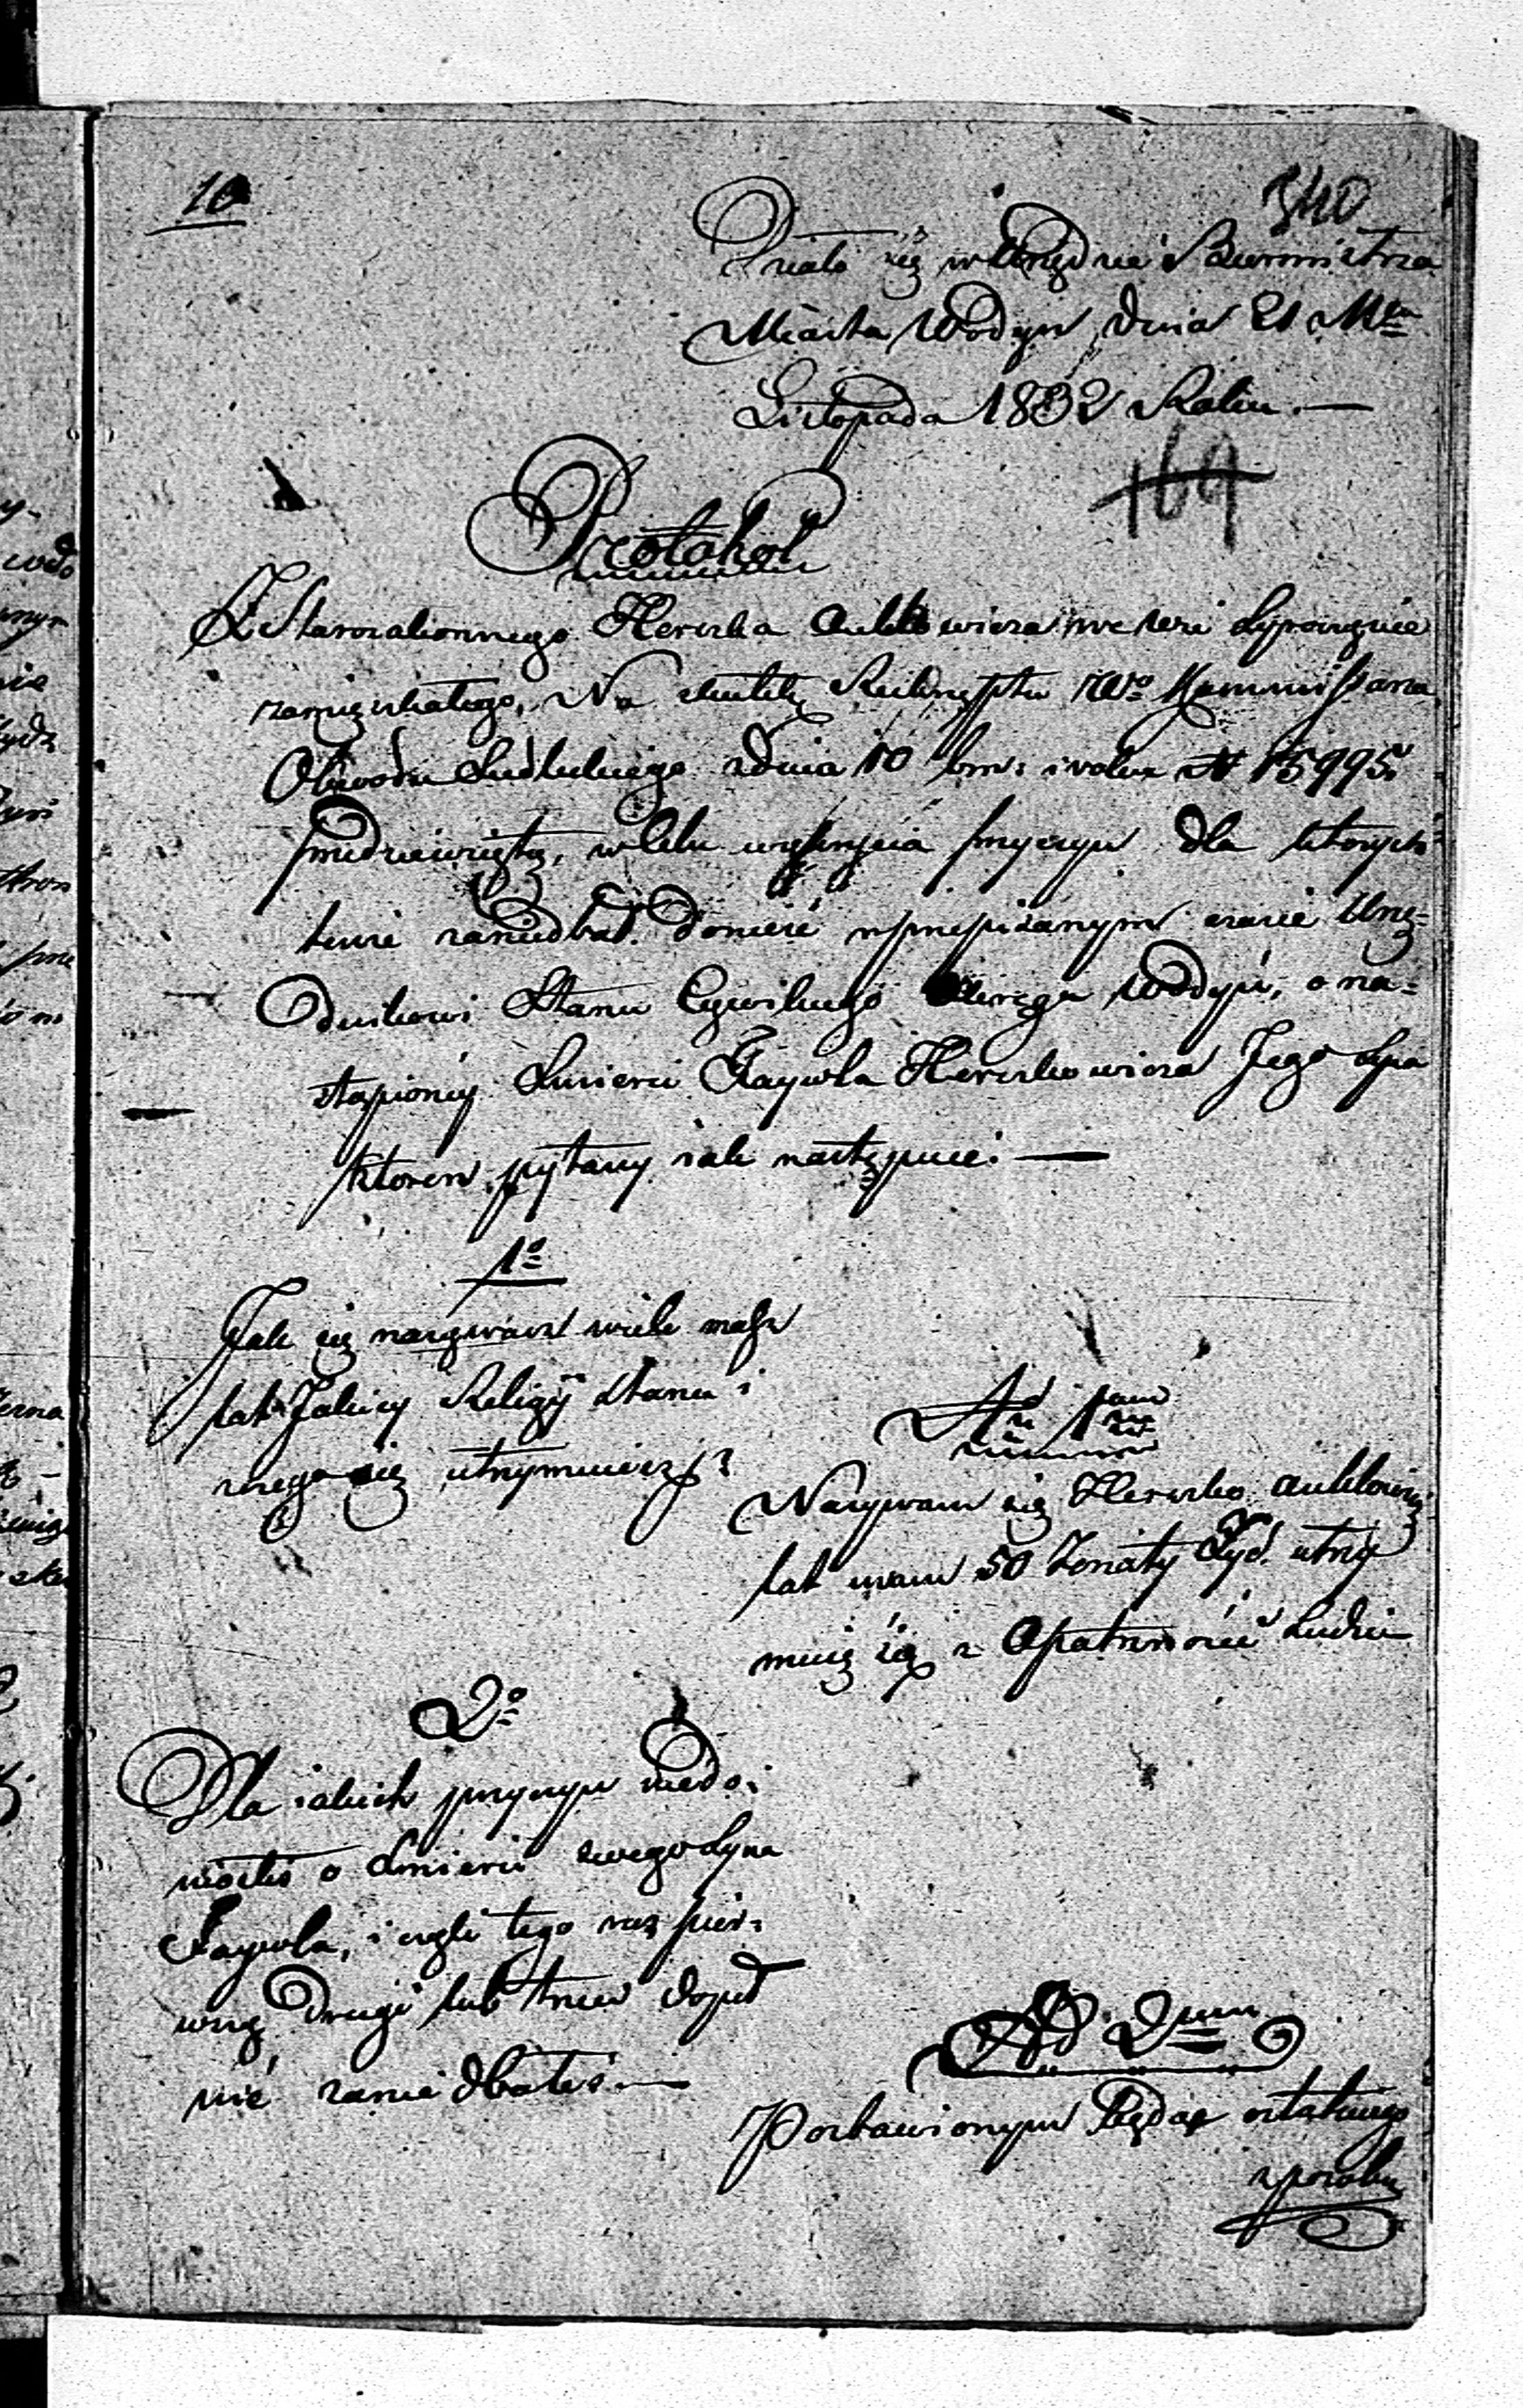 10
340
Działo się w Urzędzie Burmistrza
Miasta Wodyń dnia 21 Mca
Listopada 1832 Roku. —
169
Protokół
Z Starozakonnego Herszka we wsi
zamięszkałego, Na skutek Reskryptu Kommissarza
Obwodu Siedleckiego z dnia 10 bm: i roku N 15995
przedsięwzięty, w celu przyczyn dla których
tenże zaniedbał donieść w przepisanym czasie Urzę=
dnikowi Stanu Cywilnego Okręga Wodyń, o na=
stąpioney Smierci Faywla Herszkowicza Jego Syna
ktoren pytany iak następuie: —
1o
Jak się nazywasz wiele masz
lat Jakiey Religÿ Stanu i
z czego się utrzymuiesz?
Ad 1um
Nazywam się Herszko
lat mam 50 żonaty Żyd. utrzy
muię się z Opatrzności Ludzi
2o
Dla iakich przyczyn niedo=
niosłeś o Smierci swego Syna
Faywla, i czyli tego raz pier=
wszy drugi lub trzeci
nić zaniedbałeś. —
Ad. 2um
Pozbawionym będąc ostatniego